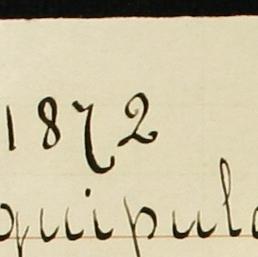 1872
quipula